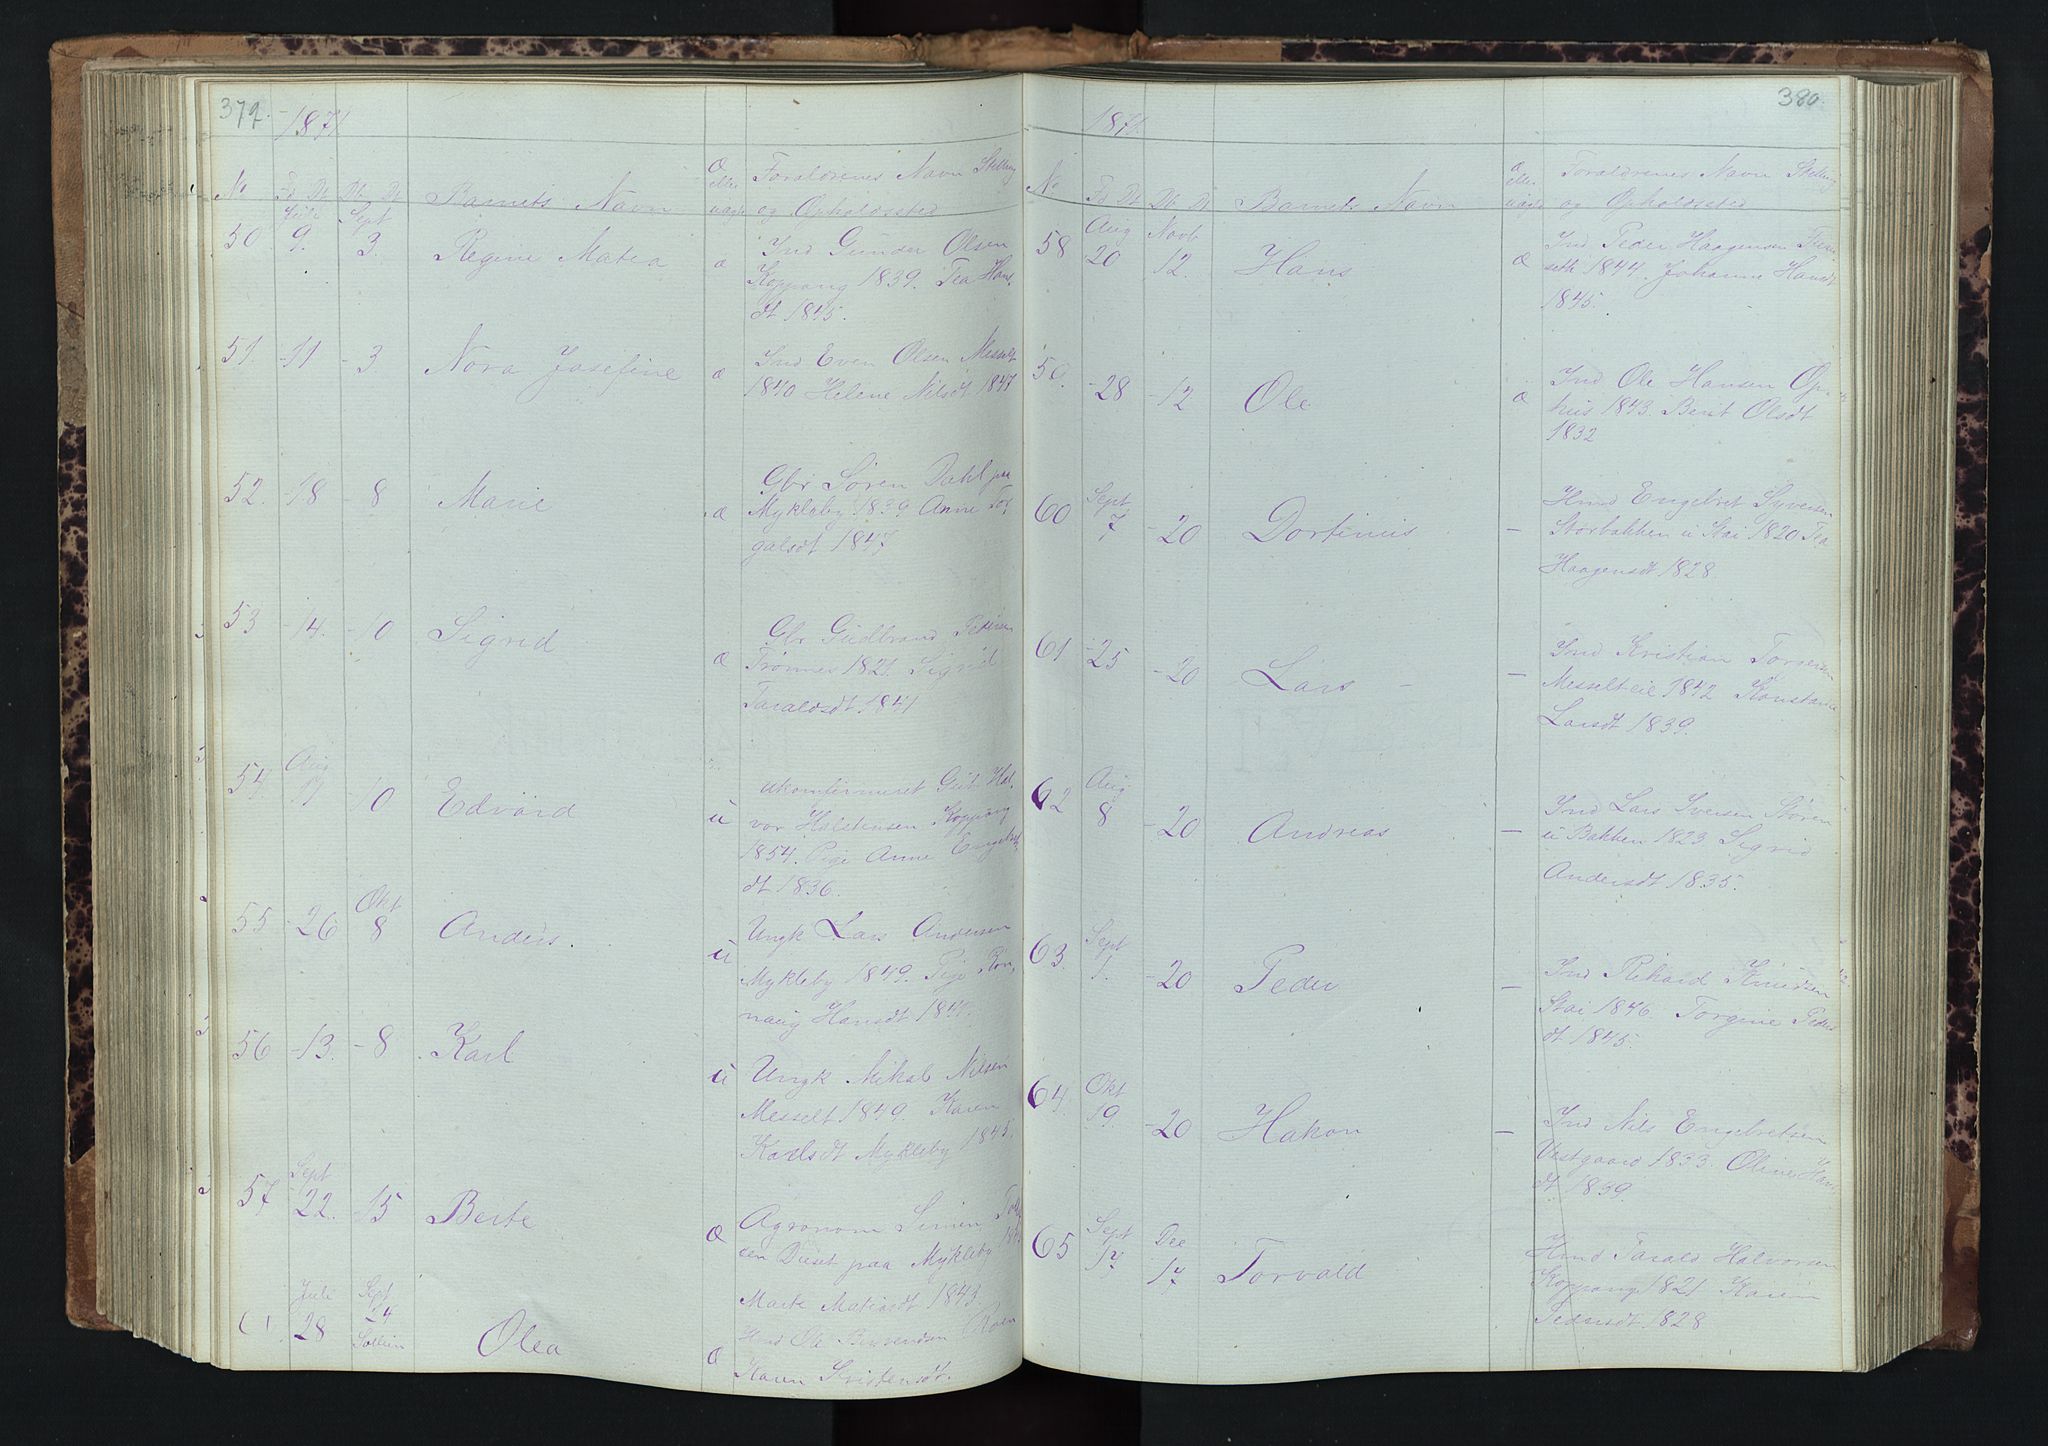 379.
1871
No
Fd Dt
Db Dt
Barnets Navn
Æ eller uægte
Foraldrenes Navn Stelling
og Opholdssted
50.
Juli
9.
Sept
3.
Regine Matea
æ
Ind Gunder Olsen
Koppang 1839. Tea Han,
dt 1845.
51.
-11
-3
Nora Josefine
æ
Ind Even Olsen Messelt
1840 Helene Nilsdt 1847
52.
-18
-8
Marie
æ
Gbr Søren Dahl paa
Mykleby 1839. Anne Tor,
galsdt 1847
53
-14.
-10
Sigrid
æ
Gbr Gudbrand Pedersen
Trønnes 1821. Sigrid
Taraldsdt 1841
54.
Aug
11
-10
Edvard
u
ukonfirmeret Gut Hal,
vor Halstensen Koppang
1854. Pige Anne Engebrets
dt 1836.
55
-26
Okt
8
Anders.
u
Ungk Lars Andersen
Mykleby 1849. Pige Ron,
naug Hansdt
56
-13.
-8
Karl
u
Ungk Mikal Nilsen
Messelt 1849. Karen
Karlsdt Mykleby 1845.
57.
Sept
22.
-15
Berte
Æ
Agronom Simen
sen paa Mykleby
Marte Matiasdt 1843.
Juli
28
Sept
24
Sollien
Olea
Æ
Karen Kristensdt.
380.
1871.
No
Fd Dt
Db Dt
Barnets Navn
Æ eller uægte
Foraldrenes Navn Stelling
og Opholdssted
58
Aug
20
Novb
12.
Hans
æ
Ind Peder Haagensen
seth 1844. Johanne Hansdt
1845.
59.
-28
-12
Ole
æ
Ind Ole Hansen Op,
hus 1843. Berit Olsdt
1832
60
Sept
7,
-20
Dortinus
-
Hmd Engebret Syversen
Storbakken u Stai 1820 Tea
Haagensdt 1828.
61
-25
-20
Lars -
-
Ind Kristian Torgersen
Messelteie 1842 Konstance
Larsdt 1839.
62
Aug
8
-20
Andreas
-
Ind Lars Iversen Støren
u Bakken 1823 Sigrid
Andersdt 1835.
63.
Sept
1.
-20
Peder
-
Ind Rikard Knudsen
Stai 1846. Torgine Peders
dt 1845.
64.
Okt
19.
-20
Hakon
-
Ind Nils Engebretsen
Vestgaard 1833. Oline Han
dt. 1839.
65
Sept
17,
Dec
17,
Torvald
Hmd Tarald Halvorsen
Koppang 1821 Karen
Pedersdt 1828